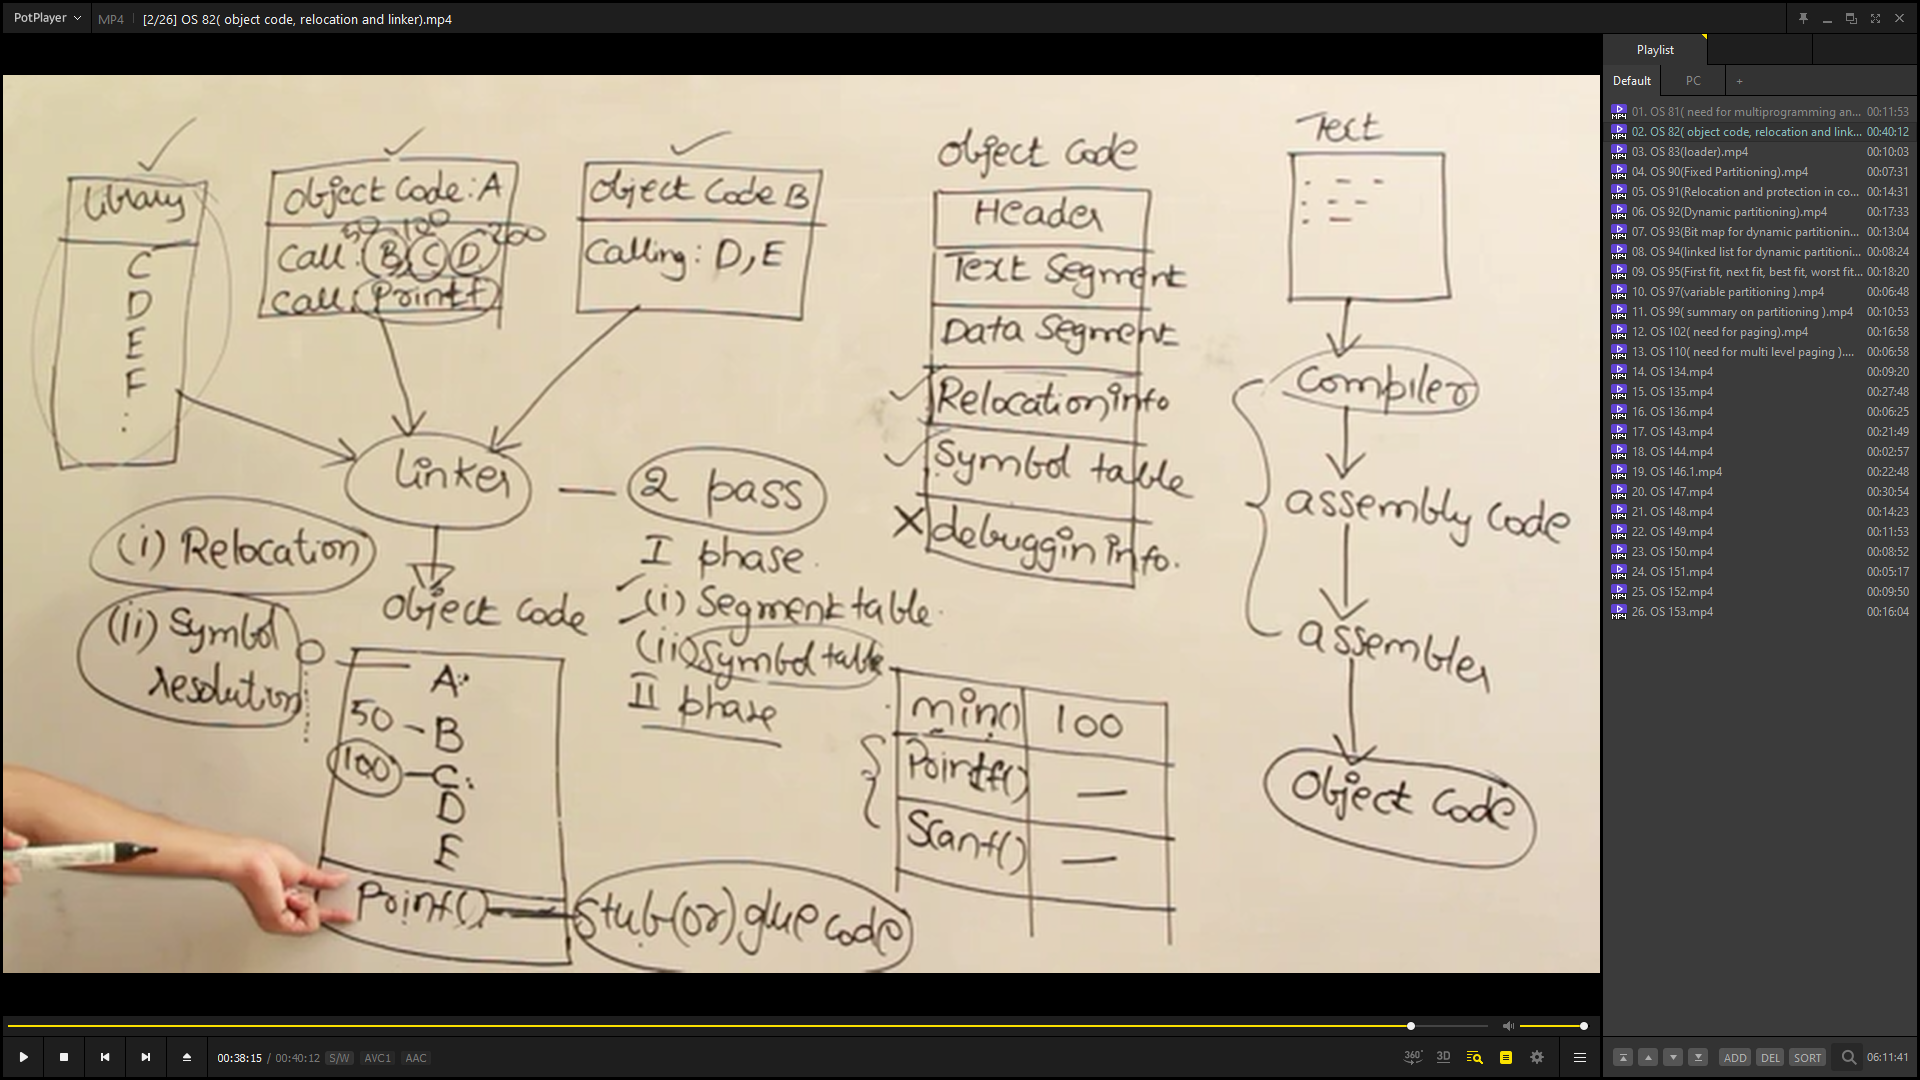 PotPlayer
MP4
[2/26] OS 82( object code, relocation and linker).mp4
Library
C
D
E
F
:
Object Code: A
50 100 200
Call: B, C, D
Call: Printf
Object Code B
Calling: D, E
linker
2 pass
(i) Relocation
(ii) Symbol
resolution
Object Code
0
A:
50 - B
100 - C:
D
E
Printf()
stub (or) glue code
I phase.
(i) Segment table.
(ii) Symbol table
II phase
min() 100
Printf() —
Scanf() —
Object Code
Header
Text Segment
Data Segment
Relocation info
Symbol table
X debuggin info.
Text
Compiler
assembly code
assembler
Object Code
Playlist
Default
PC
+
01. OS 81( need for multiprogramming an... 00:11:53
02. OS 82( object code, relocation and link... 00:40:12
03. OS 83(loader).mp4 00:10:03
04. OS 90(Fixed Partitioning).mp4 00:07:31
05. OS 91(Relocation and protection in co... 00:14:31
06. OS 92(Dynamic partitioning).mp4 00:17:33
07. OS 93(Bit map for dynamic partitionin... 00:13:04
08. OS 94(linked list for dynamic partitioni... 00:08:24
09. OS 95(First fit, next fit, best fit, worst fit... 00:18:20
10. OS 97(variable partitioning ).mp4 00:06:48
11. OS 99( summary on partitioning ).mp4 00:10:53
12. OS 102( need for paging).mp4 00:16:58
13. OS 110( need for multi level paging ).... 00:06:58
14. OS 134.mp4 00:09:20
15. OS 135.mp4 00:27:48
16. OS 136.mp4 00:06:25
17. OS 143.mp4 00:21:49
18. OS 144.mp4 00:02:57
19. OS 146.1.mp4 00:22:48
20. OS 147.mp4 00:30:54
21. OS 148.mp4 00:14:23
22. OS 149.mp4 00:11:53
23. OS 150.mp4 00:08:52
24. OS 151.mp4 00:05:17
25. OS 152.mp4 00:09:50
26. OS 153.mp4 00:16:04
00:38:15 / 00:40:12 S/W AVC1 AAC
360° 3D
ADD DEL SORT 06:11:41